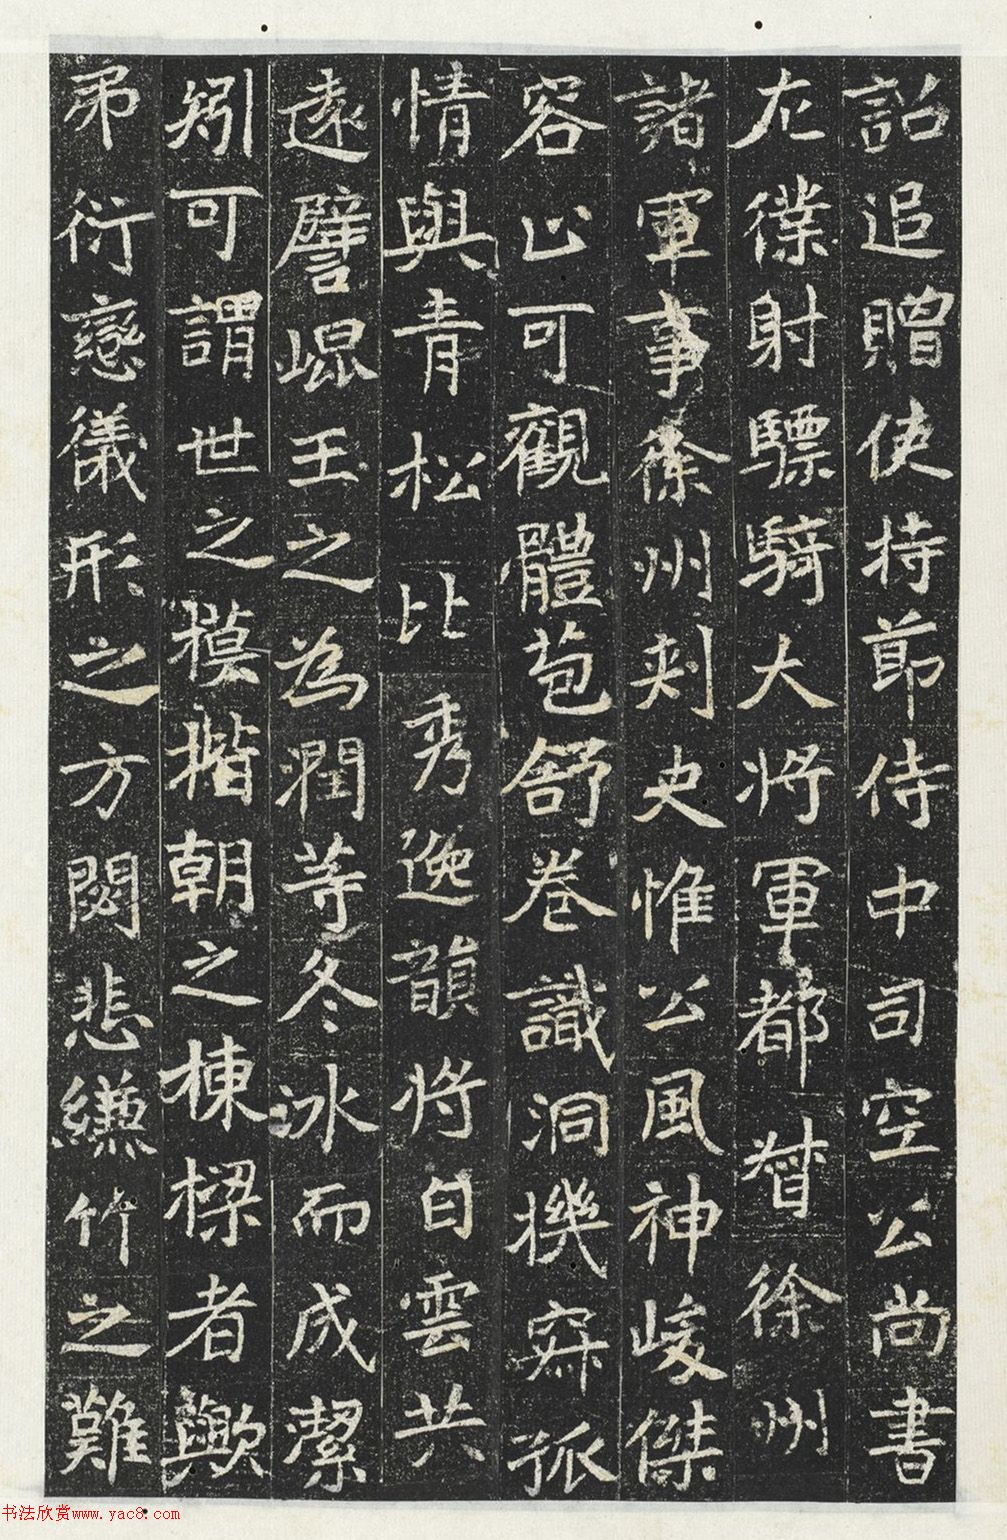 詔追贈使持節侍中司空公尚書
左僕射驃騎大將軍都督徐州
諸軍事徐州刺史惟公風神峻傑
容止可觀體苞舒卷識洞機寂孤
情與青松比秀逸韻將白雲共
遠譬崐玉之為潤等冬冰而成潔
矧可謂世之模揩朝之棟樑者歟
弟衍戀儀形之方閟悲縑竹之難
书法欣赏www.yac8.com